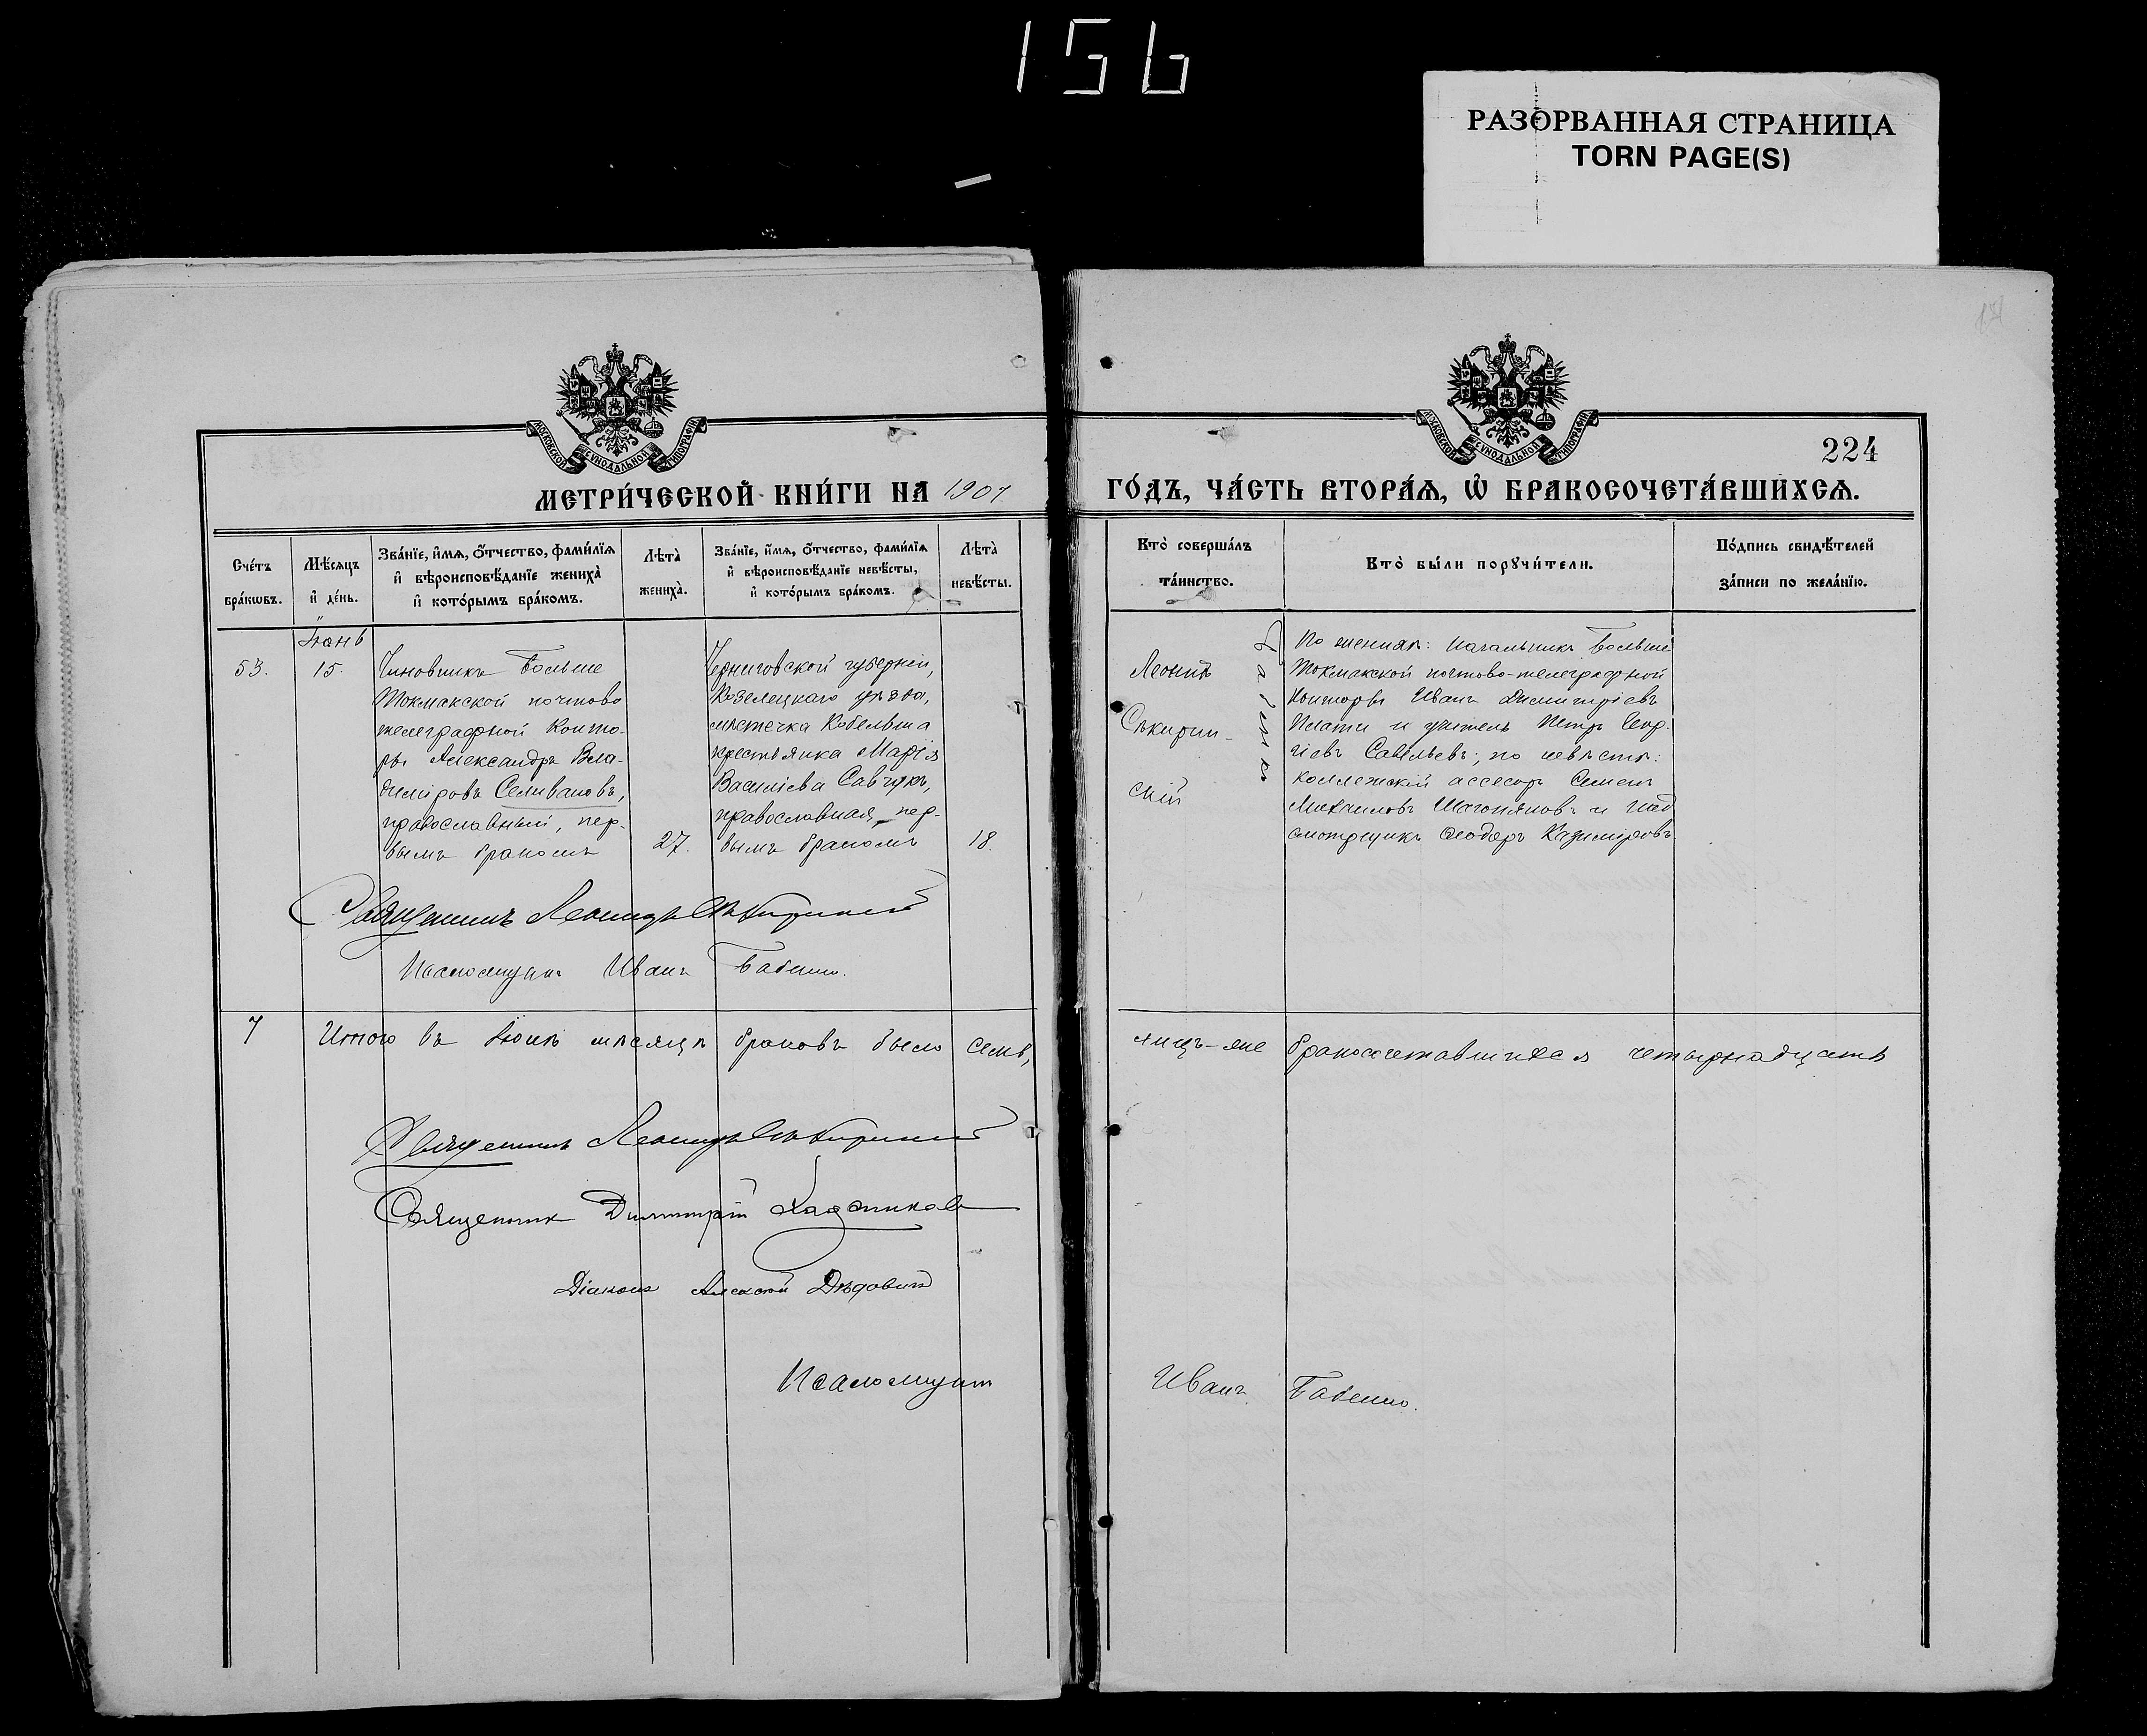 156
РАЗОРВАННАЯ СТРАНИЦА
TORN PAGE(S)
МОСКОВСКОЙ СУНОДАЛЬНОЙ ТИПОГРАФIИ
МОСКОВСКОЙ СУНОДАЛЬНОЙ ТИПОГРАФIИ
224
МЕТРИ́ЧЕСКОЙ КНИ́ГИ НА 1907 ГО́ДЪ, ЧА́СТЬ ВТОРА́Ѧ, Ѡ҆ БРАКОСОЧЕТА́ВШИХСѦ.
Сче́тъ бра́кѡвъ.
Мѣ́сѧцъ и҆ де́нь.
Зва́нїе, и҆́мѧ, ѻ҆́тчество, фами́лїѧ
и҆ вѣроисповѣ́данїе жениха̀
и҆ кото́рымъ бра́комъ.
Лѣта̀ жениха̀.
Зва́нїе, и҆́мѧ, ѻ҆́тчество, фами́лїѧ
и҆ вѣроисповѣ́данїе невѣ́сты,
и҆ кото́рымъ бра́комъ.
Лѣта̀ невѣ́сты.
Кто̀ соверша́лъ
та́инство.
Кто̀ бы́ли порꙋчи́тели.
По́дпись свидѣ́телей
за́писи по жела́нїю.
Iюнь
53.
15.
Чиновникъ Больше
Токмакской почтово
телеграфной Конто-
ры Александръ Вла-
димiровъ Селивановъ,
православный, пер-
вымъ бракомъ
27.
Черниговской губернiи,
Козелецкаго уѣзда,
мѣстечка Кобельша
крестьянка Марiя
Василiева Савчукъ,
православная, пер-
вымъ бракомъ
18.
Леонидъ
Сѣкирин-
скiй
По женихѣ: начальникъ Больше
Токмакской почтово-телеграфной
Конторы Иванъ Димитрiевъ
и учитель Петръ Геор-
гiевъ Савельевъ; по невѣстѣ:
коллежскiй ассесоръ Семенъ
Михаиловъ и над
смотрщикъ Ѳеодоръ Казимiровъ
Священникъ Леонидъ Сѣкиринскiй
Псаломщикъ Иванъ Бабенко.
7
Итого въ Iюнѣ мѣсяцѣ браковъ было семь, лицъ-же бракосочетавшихся четырнадцать
Священникъ Леонидъ Сѣкиринскiй
Священникъ Димитрiй
Дiаконъ Алексѣй Дѣдовичъ
Псаломщикъ Иванъ Бабенко.